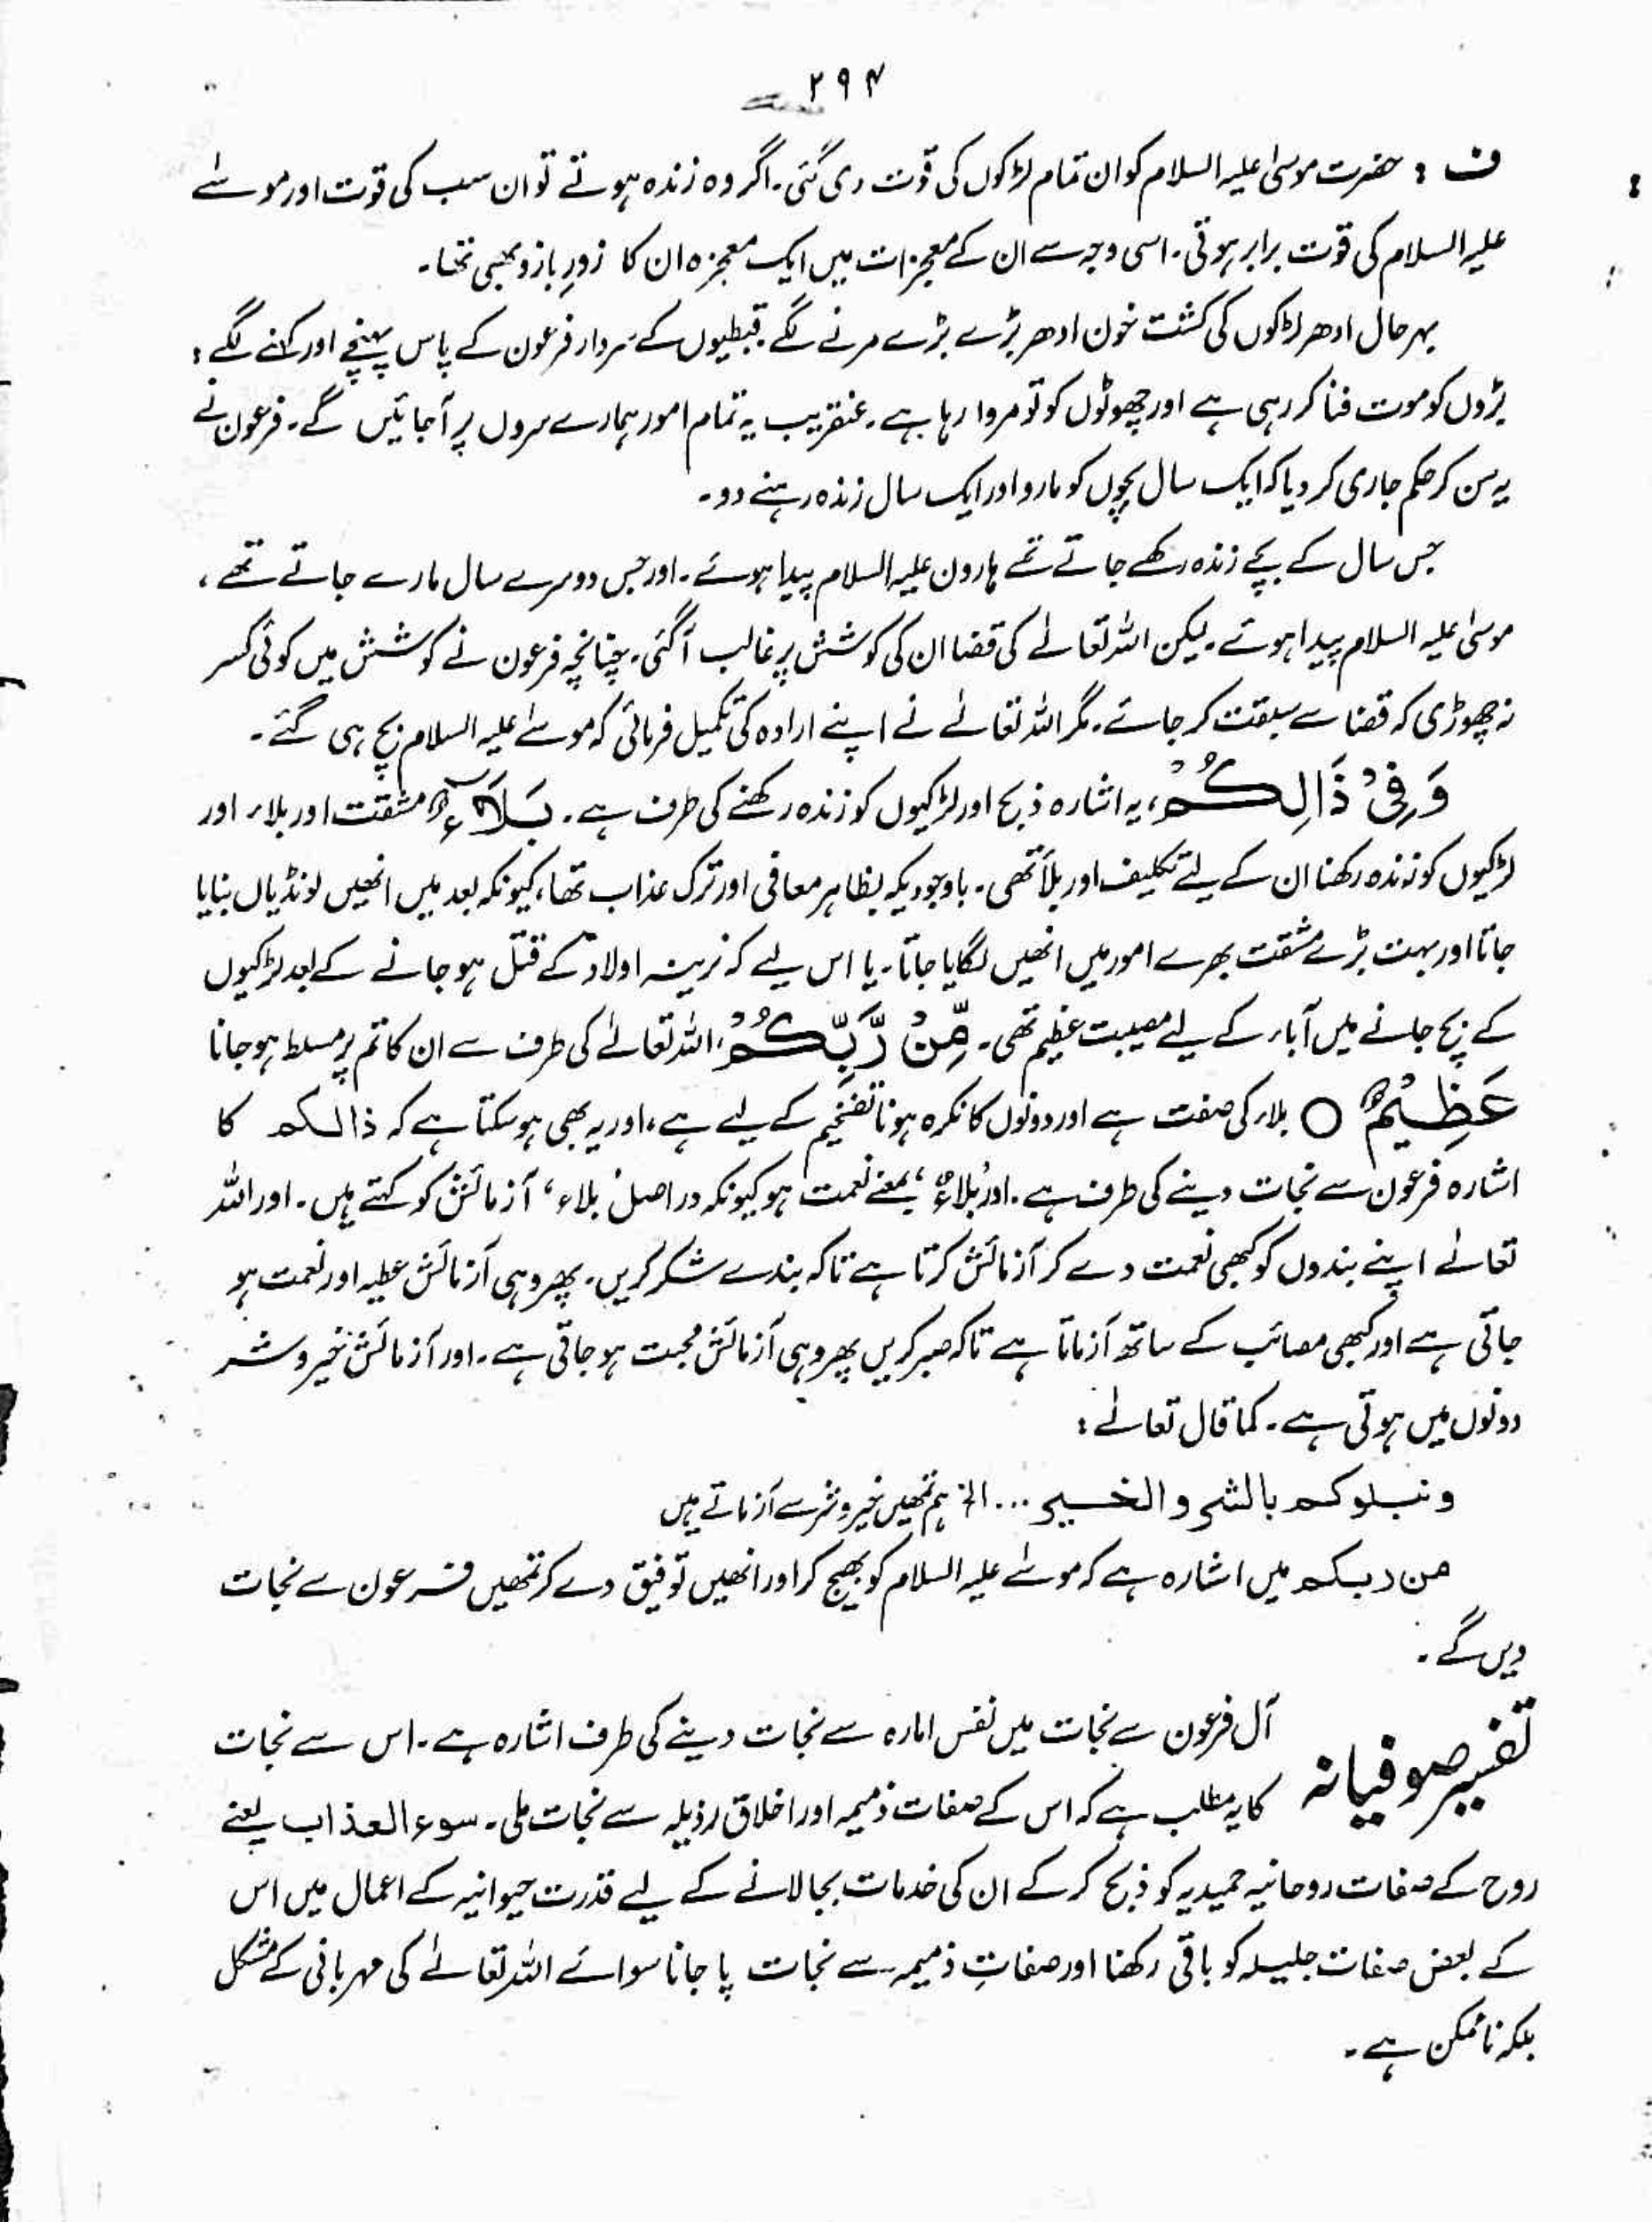 ۲۹۴
ف : حضرت موسیٰ علیہ السلام کو ان تمام لڑکوں کی قوّت دی گئی۔ اگر وہ زندہ ہوتے تو ان سب کی قوت اور موسےٰ
علیہ السلام کی قوت برابر ہوتی۔ اسی وجہ سے ان کے معجزات میں ایک معجزہ ان کا زورِ بازو بھی تھا۔
بہرحال ادھر لڑکوں کی کشت خون ادھر بڑے بڑے مرنے لگے قبطیوں کے سردار فرعون کے پاس پہنچے اور کہنے لگے :
بڑوں کو موت فنا کر رہی ہے اور چھوٹوں کو تو مروا رہا ہے۔ عنقریب یہ تمام امور ہمارے سروں پر آجائیں گے۔ فرعون نے
یہ سن کر حکم جاری کر دیا کہ ایک سال بچوں کو مارو اور ایک سال زندہ رہنے دو۔
جس سال کے بچے زندہ رکھے جاتے تھے ہارون علیہ السلام پیدا ہوئے۔ اور جس دوسرے سال مارے جاتے تھے ،
موسیٰ علیہ السلام پیدا ہوئے۔ لیکن اللہ تعالےٰ کی قضا ان کی کوشش پر غالب آگئی۔ چنانچہ فرعون نے کوشش میں کوئی کسر
نہ چھوڑی کہ قضا سے سبقت کر جائے۔ مگر اللہ تعالےٰ نے اپنے ارادہ کی تکمیل فرمائی کہ موسےٰ علیہ السلام بچ ہی گئے۔
وَفِیْ ذَالِکُمْ، یہ اشارہ ذبح اور لڑکیوں کو زندہ رکھنے کی طرف ہے۔ بَلَآءٌ مشقت اور بلاء اور
لڑکیوں کو زندہ رکھنا ان کے لیے تکلیف اور بلاَ تھی۔ باوجودیکہ بظاہر معافی اور ترک عذاب تھا، کیونکہ بعد میں انھیں لونڈیاں بنایا
جاتا اور بہت بڑے مشقت بھرے امور میں انھیں لگایا جاتا۔ یا اس لیے کہ نرینہ اولاد کے قتل ہو جانے کے بعد لڑکیوں
کے بچ جانے میں آباء کے لیے مصیبت عظیم تھی۔ مِّنْ رَّبِّکُمْ، اللہ تعالےٰ کی طرف سے ان کا تم پر مسلط ہو جانا
عَظِیْمٌ ○ بلاء کی صفت ہے اور دونوں کا نکرہ ہونا تفخیم کے لیے ہے، اور یہ بھی ہو سکتا ہے کہ ذالکم کا
اشارہ فرعون سے نجات دینے کی طرف ہے۔ اور ’بلاءٌ‘ بمعنے نعمت ہو کیونکہ دراصل ’بلاء‘ آزمائش کو کہتے ہیں۔ اور اللہ
تعالےٰ اپنے بندوں کو کبھی نعمت دے کر آزمائش کرتا ہے تاکہ بندے شکر کریں۔ پھر وہی آزمائش عطیہ اور نعمت ہو
جاتی ہے اور کبھی مصائب کے ساتھ آزماتا ہے تاکہ صبر کریں پھر وہی آزمائش محبت ہو جاتی ہے۔ اور آزمائش خیر و شر
دونوں میں ہوتی ہے۔ کما قال تعالےٰ :
ونبلوکم بالشر والخیر ... الخ ہم تمھیں خیر و شر سے آزماتے ہیں
من ربکم میں اشارہ ہے کہ موسےٰ علیہ السلام کو بھیج کر اور انھیں توفیق دے کر تمھیں فرعون سے نجات
دیں گے۔
تفسیر صوفیانہ آل فرعون سے نجات میں نفس امارہ سے نجات دینے کی طرف اشارہ ہے۔ اس سے نجات
کا یہ مطلب ہے کہ اس کے صفات ذمیمہ اور اخلاق رذیلہ سے نجات ملی۔ سوء العذاب یعنے
روح کے صفات روحانیہ حمیدیہ کو ذبح کر کے ان کی خدمات بجا لانے کے لیے قدرت حیوانیہ کے اعمال میں اس
کے بعض صفات جلیسہ کو باقی رکھنا اور صفاتِ ذمیمہ سے نجات پا جانا سوائے اللہ تعالےٰ کی مہربانی کے مشکل
بلکہ ناممکن ہے۔